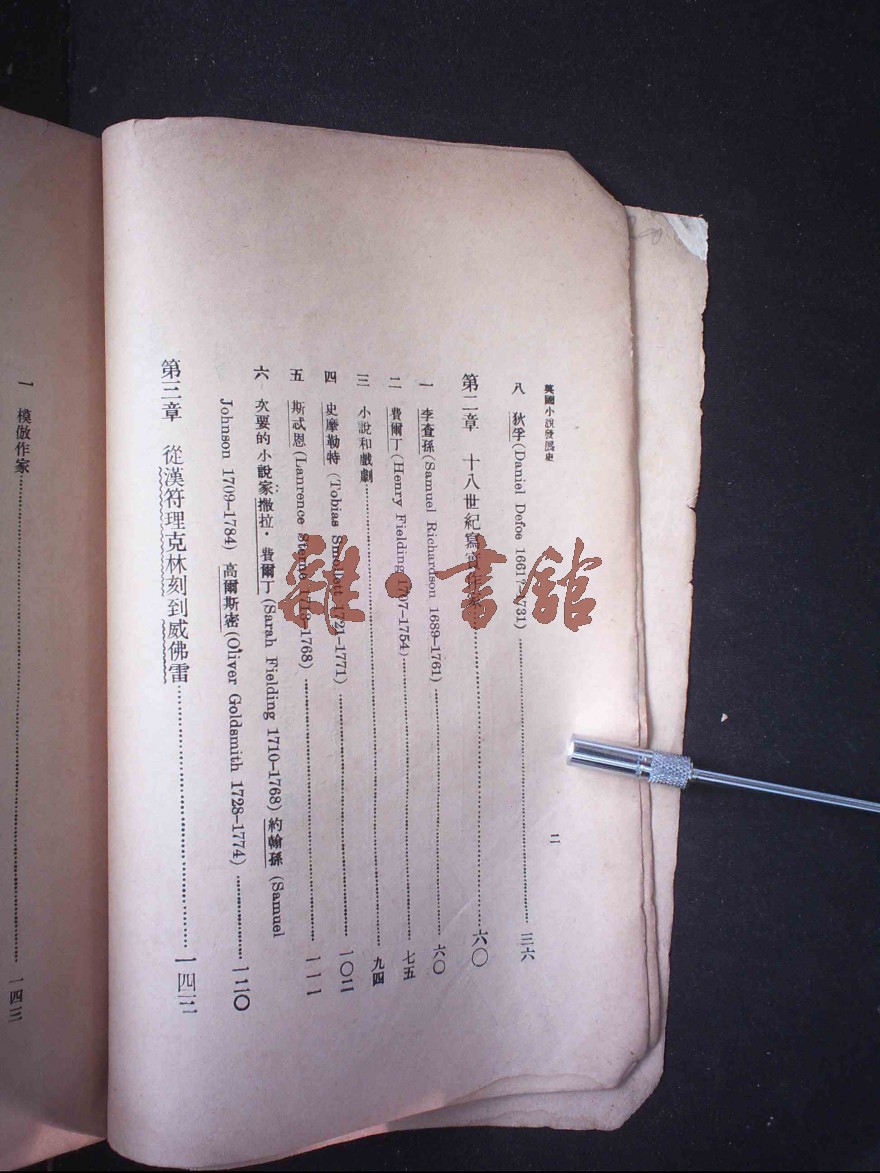 英國小說發展史
二
八 狄孚 (Daniel Defoe 1661?-1731)……三六
第二章 十八世紀寫實作家……六〇
一 李查孫 (Samuel Richardson 1689-1761)……六〇
二 費爾丁 (Henry Fielding 1707-1754)……七五
三 小說和戲劇……九四
四 史摩勒特 (Tobias Smollett 1721-1771)……一〇二
五 斯忒恩 (Lanrence Sterne 1713-1768)……一一一
六 次要的小說家:撒拉·費爾丁 (Sarah Fielding 1710-1768) 約翰孫 (Samuel
Johnson 1709-1784) 高爾斯密 (Oliver Goldsmith 1728-1774)……一二〇
第三章 從漢符理克林刻到威佛雷……一四三
一 模倣作家……一四三
雜·書館